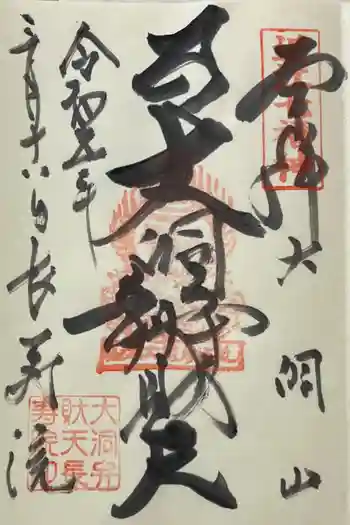 奉拝 大洞山
大洞辨財天
令和七年
三月十八日 長寿院
大洞弁
財天長
寿院印